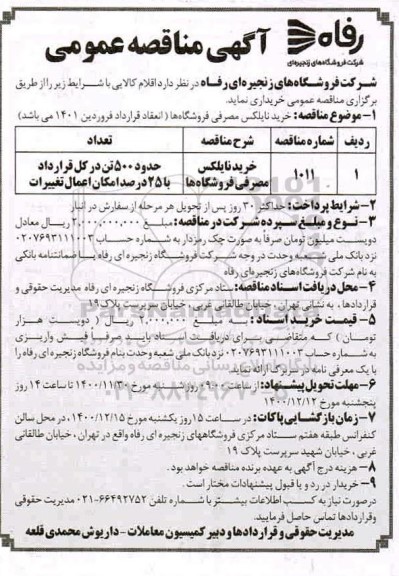 رفاه
شرکت فروشگاه‌های زنجیره‌ای
آگهی مناقصه عمومی
شرکت فروشگاه‌های زنجیره‌ای رفاه در نظر دارد اقلام کالایی با شرایط زیر را از طریق
برگزاری مناقصه عمومی خریداری نماید.
۱- موضوع مناقصه: خرید نایلکس مصرفی فروشگاه‌ها ( انعقاد قرارداد فروردین ۱۴۰۱ می باشد)
ردیف شماره مناقصه شرح مناقصه تعداد
۱ ۱۰۱۱ خرید نایلکس مصرفی فروشگاه‌ها حدود ۵۰۰ تن در کل قرارداد
با ۲۵ درصد امکان اعمال تغییرات
۲- شرایط پرداخت: حداکثر ۳۰ روز پس از تحویل هر مرحله از سفارش در انبار
۳- نوع و مبلغ سپرده شرکت در مناقصه: مبلغ ۲,۰۰۰,۰۰۰,۰۰۰ ریال معادل
دویست میلیون تومان صرفاً به صورت چک رمزدار به شماره حساب ۰۲۰۷۶۹۳۱۱۱۰۰۳
نزد بانک ملی شعبه وحدت در وجه شرکت فروشگاه زنجیره ای رفاه یا ضمانتنامه بانکی
به نام شرکت فروشگاه‌های زنجیره‌ای رفاه
۴- محل دریافت اسناد مناقصه: ستاد مرکزی فروشگاه زنجیره ای رفاه مدیریت حقوقی و
قراردادها ، به نشانی تهران ، خیابان طالقانی غربی ، خیابان سرپرست پلاک ۱۹
۵- قیمت خرید اسناد : به مبلغ ۲,۰۰۰,۰۰۰ ریال ( دویست هزار
تومان ) که متقاضی برای دریافت اسناد باید صرفاً فیش واریزی
به شماره حساب ۰۲۰۷۶۹۳۱۱۱۰۰۳ نزد بانک ملی شعبه وحدت بنام فروشگاه زنجیره ای رفاه را
با یک معرفی نامه در سربرگ ارائه نماید.
۶- مهلت تحویل پیشنهاد: از ساعت ۰۹:۰۰ روز شنبه مورخ ۱۴۰۰/۱۱/۳۰ تا ساعت ۱۴ روز
پنجشنبه مورخ ۱۴۰۰/۱۲/۱۲
۷- زمان بازگشایی پاکات: در ساعت ۱۵ روز یکشنبه مورخ ۱۴۰۰/۱۲/۱۵، در محل سالن
کنفرانس طبقه هفتم ستاد مرکزی فروشگاههای زنجیره ای رفاه واقع در تهران ، خیابان طالقانی
غربی ، خیابان شهید سرپرست پلاک ۱۹
۸- هزینه درج آگهی به عهده برنده مناقصه خواهد بود .
۹- خریدار در رد و یا قبول پیشنهادات مختار است .
درصورت نیاز به کسب اطلاعات بیشتر با شماره تلفن ۶۶۴۹۲۷۵۲-۰۲۱ مدیریت حقوقی
وقراردادها تماس حاصل فرمایید.
مدیریت حقوقی و قراردادها و دبیر کمیسیون معاملات - داریوش محمدی قلعه